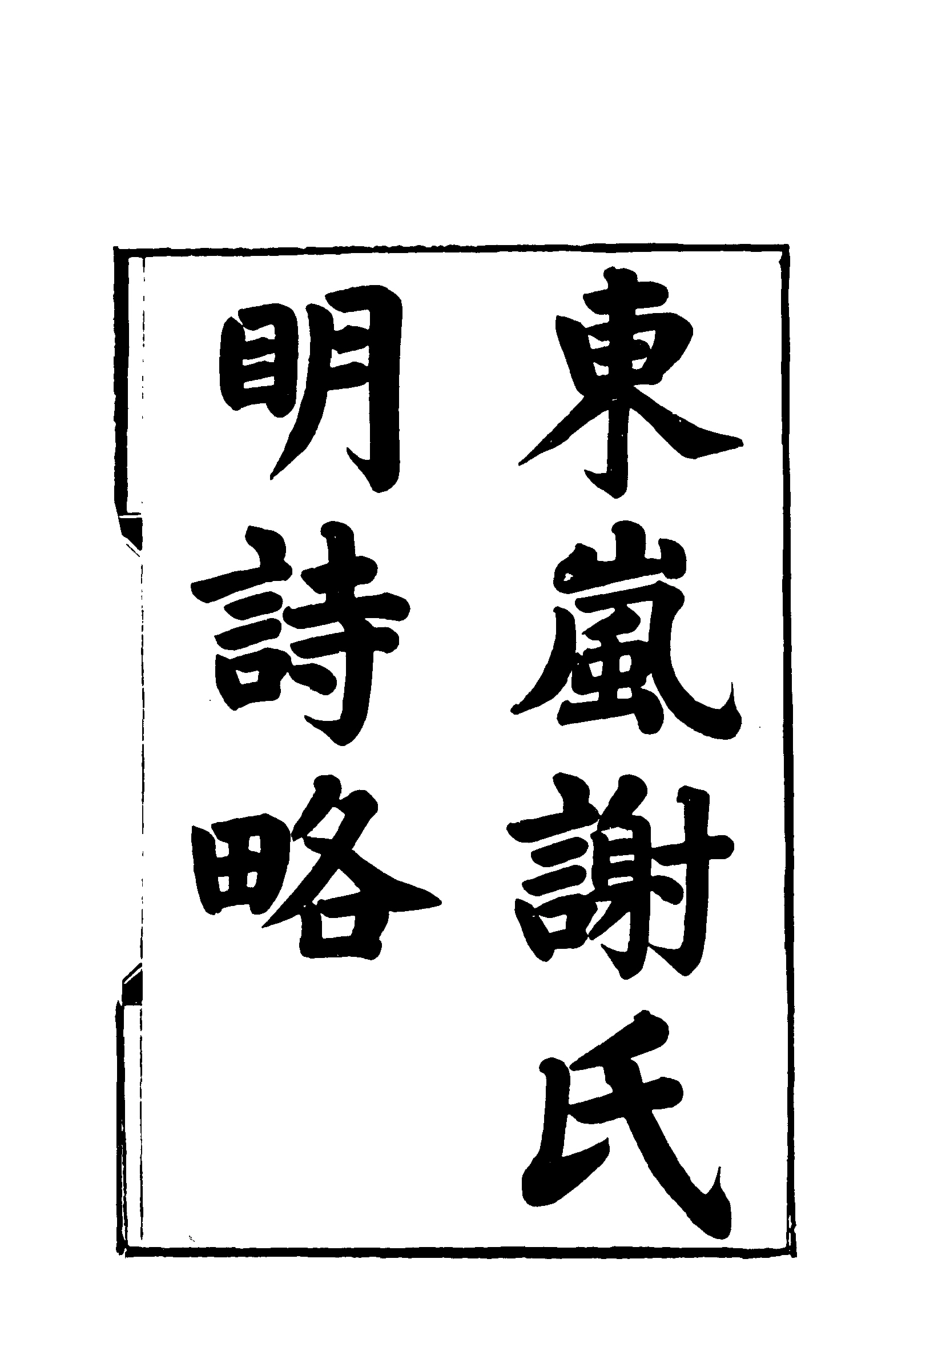 東嵐謝氏
明詩略